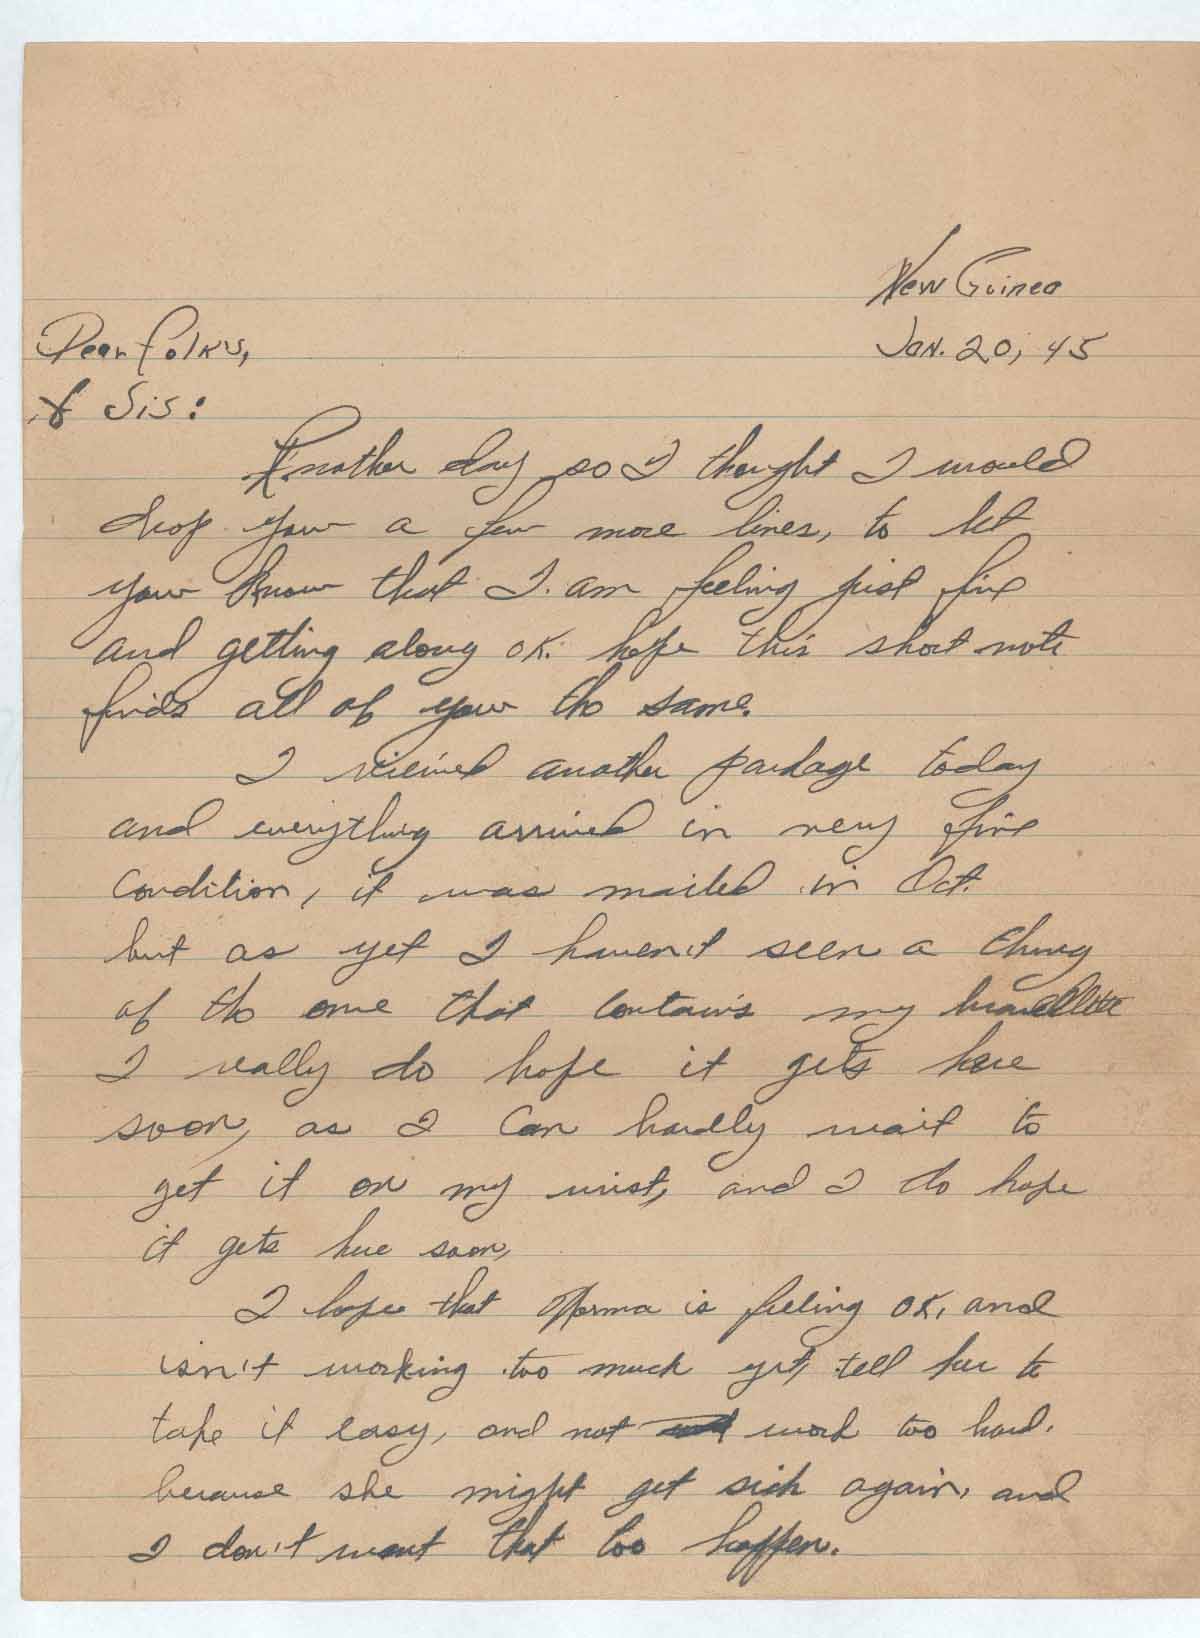 New Guinea
Jan. 20, 45
Dear Folk's,
& Sis:
Another day so I thought I would
drop you a few more lines, to let
you know that I am feeling just fine
and getting along OK. hope this short note
finds all of you the same.
I recieved another package today
and everything arrived in very fine
Condition, it was mailed in Oct.
but as yet I haven't seen a thing
of the one that contain's my bracellete
I really do hope it gets here
soon, as I can hardly wait to
get it on my wrist, and I do hope
it gets here soon,
I hope that Norma is feeling OK, and
isn't working too much yet, tell her to
take it easy, and not work too hard.
because she might get sick again, and
I don't want that too happen.